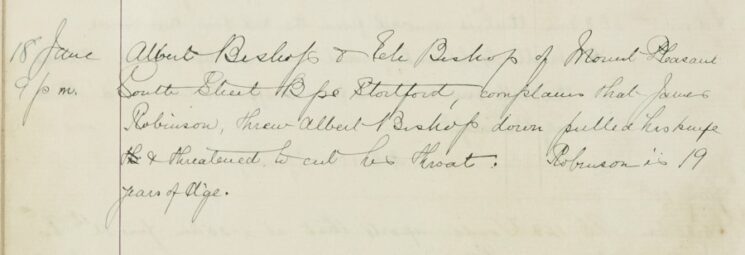 18 June Albert Bishop & Eli Bishop of Mount Pleasant
9 p m. South Street Bps Stortford, complains that James
Robinson, threw Albert Bishop down pulled his knife
& threatened to cut his throat. Robinson is 19
years of Age.